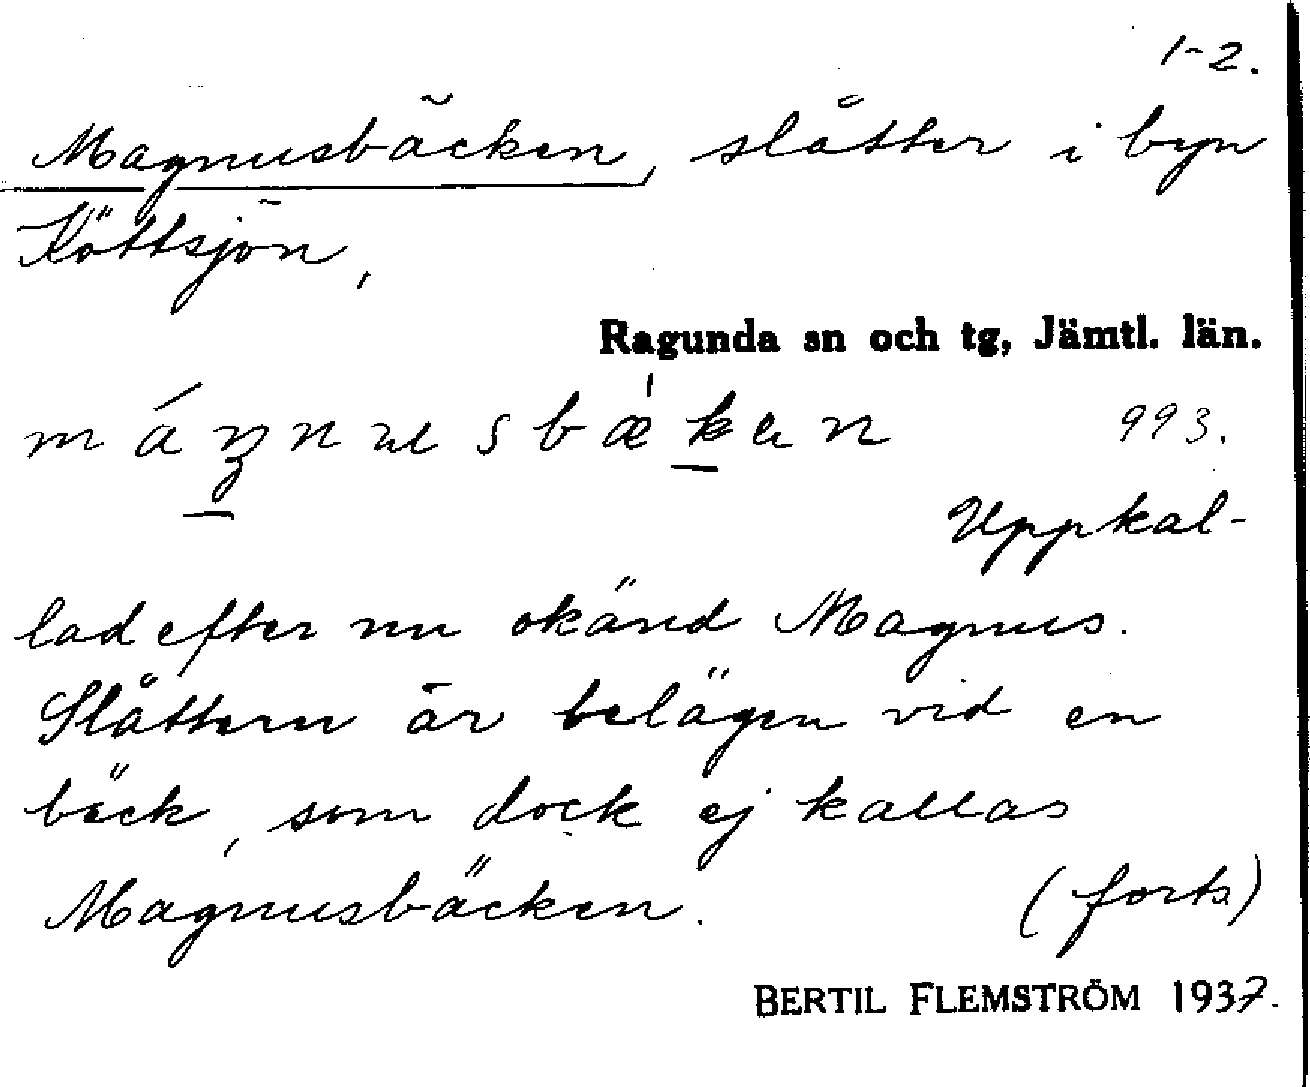 1-2.
Magnusbäcken, slåtter i byn
Köttsjön,
Ragunda sn och tg, Jämtl. län.
993.
Uppkal-
lad efter nu okänd Magnus.
Slåttern är belägen vid en
bäck, som dock ej kallas
Magnusbäcken. (forts)
BERTIL FLEMSTRÖM 1937.